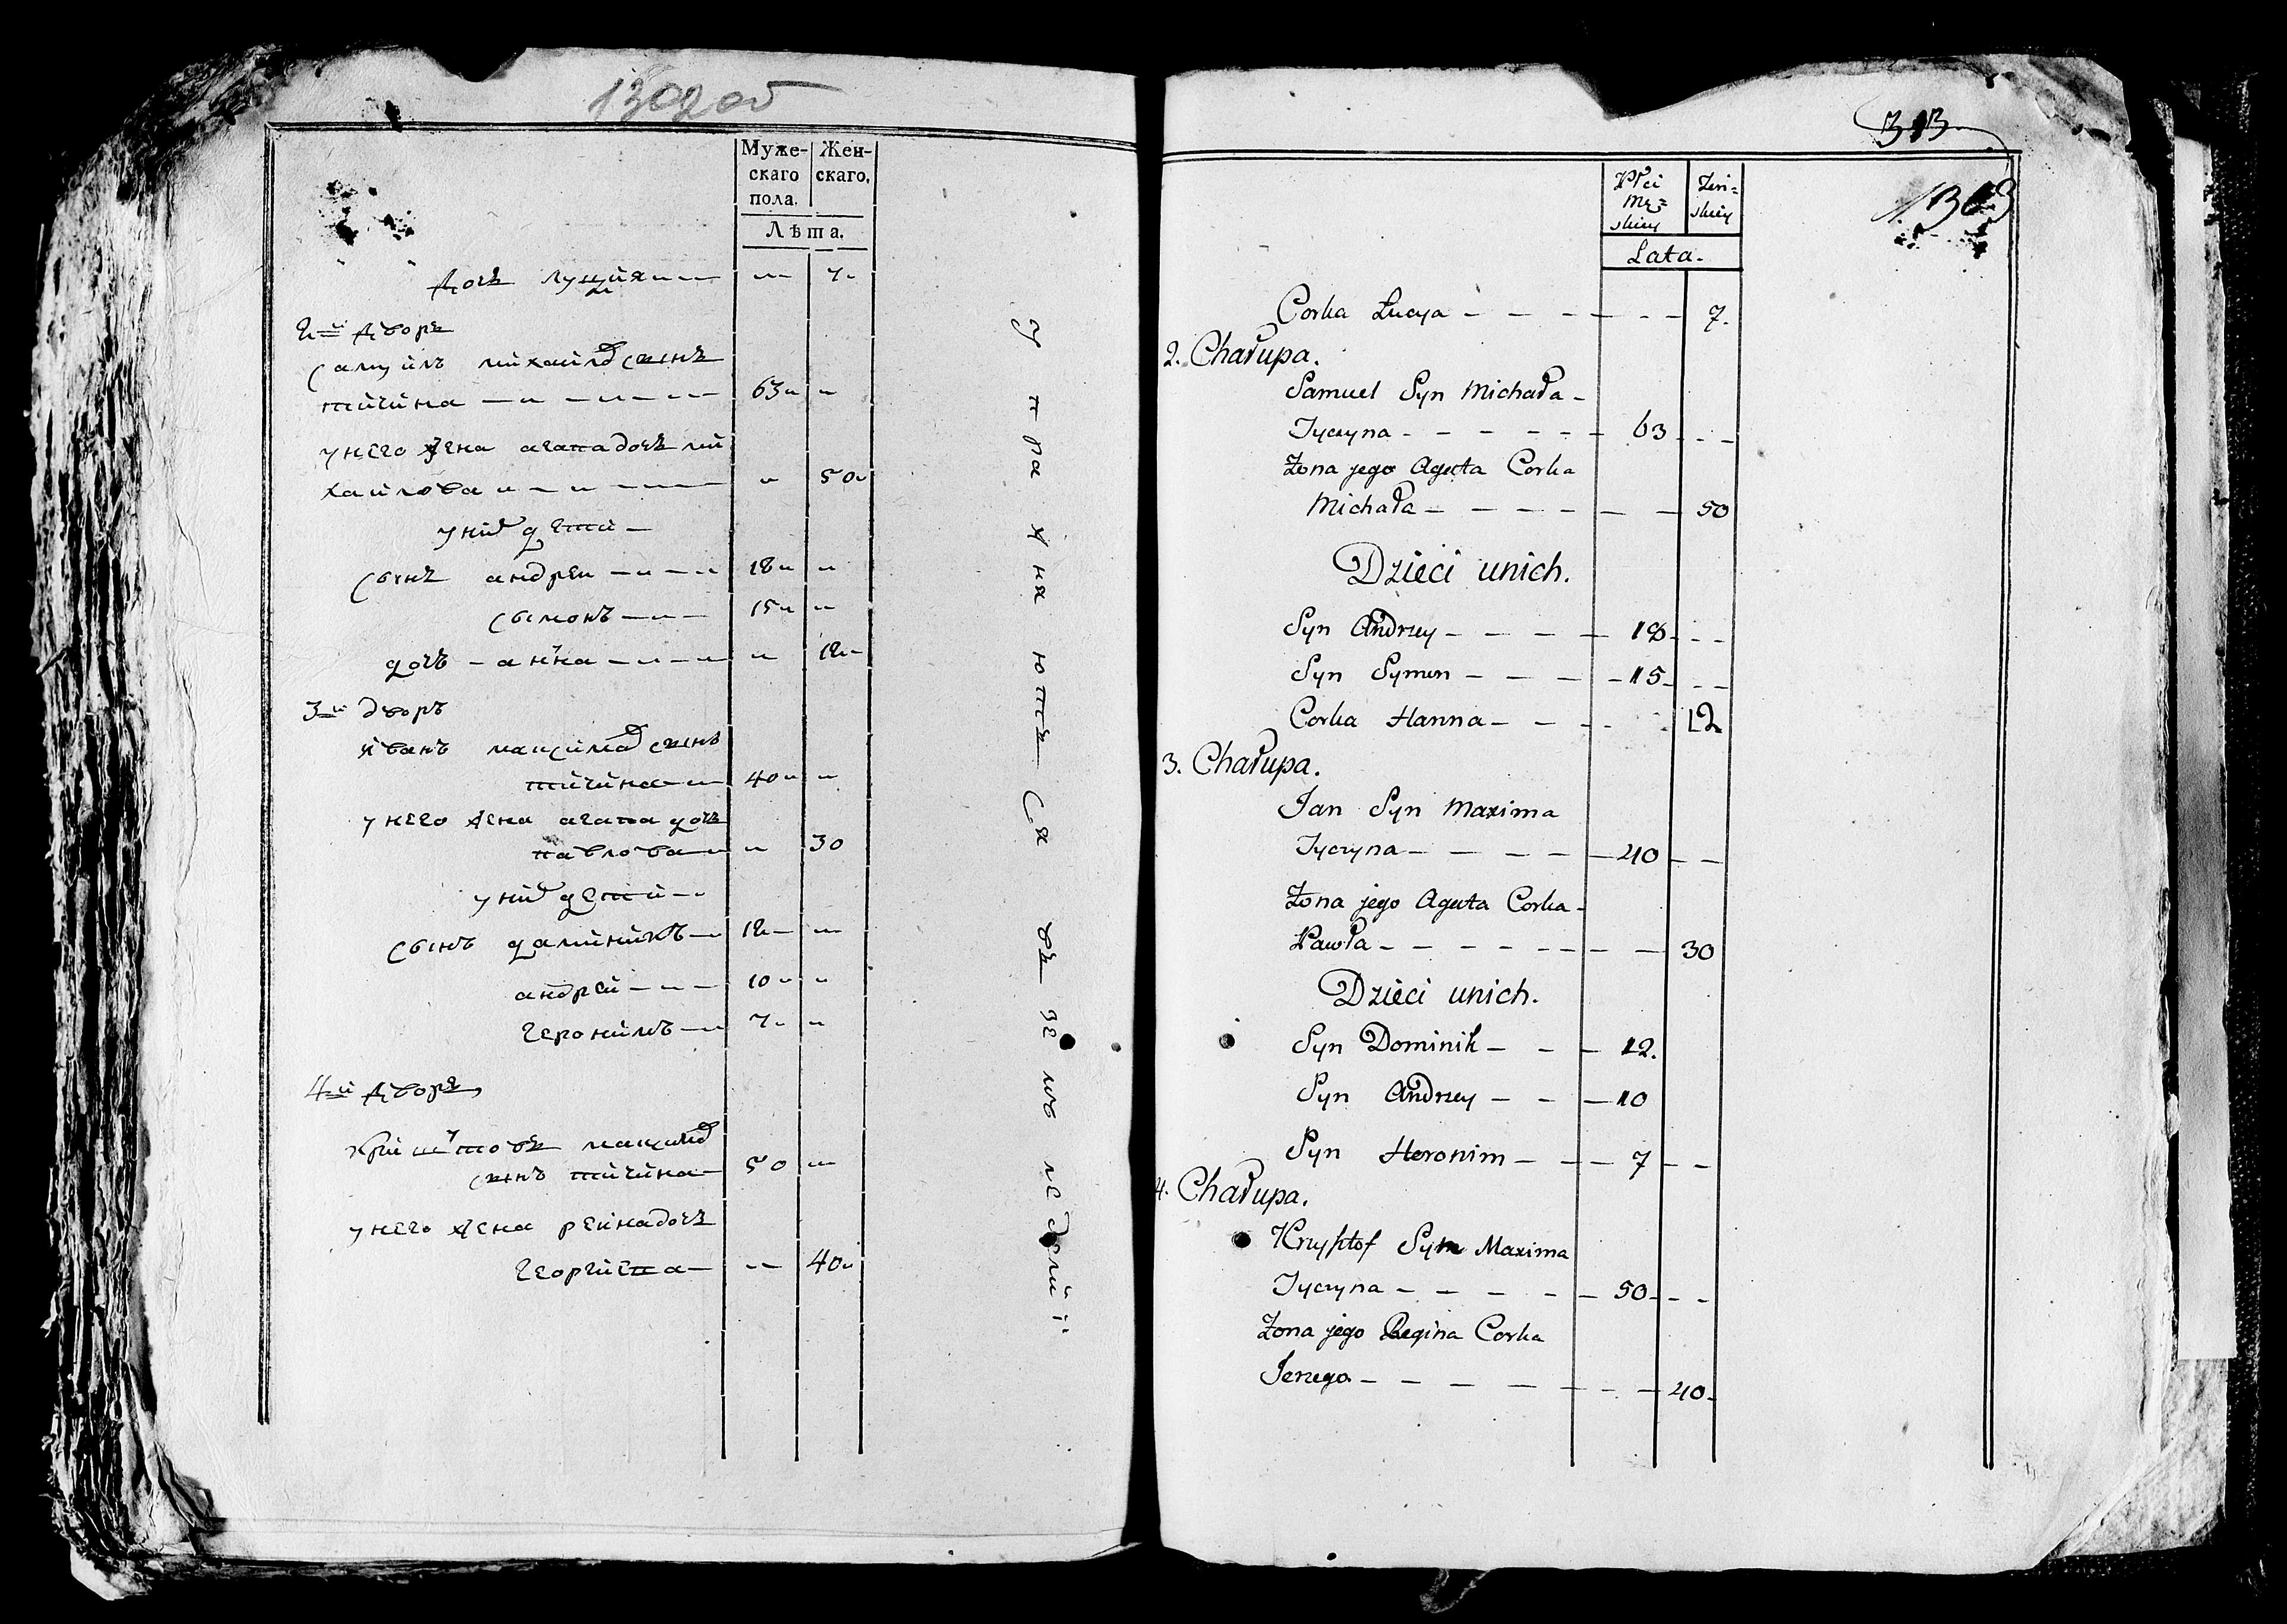 1302 об
Муже-
скаго
пола.
Жен-
скаго.
Лѣта.
дочь луция - - - 7
2й дворъ
самуилъ михайлов сынъ
тичина - - - 63
у него жена агата дочь ми
хайлова - - - 50
у них дети -
сынъ андреи - - - 18
сымонъ - - - 15
дочь - анна - - - 12
3й дворъ
иванъ максимов сынъ
тичина - - 40
у него жена агата дочь
павлова - - 30
у них дети - -
сынъ даминикъ - 12
андрей - - - 10
геронимъ - 7
4й дворъ
криштовъ максимов
сынъ тичина - 50
у него жена реина дочь
георгиева - - 40
упражняются въ земледелии
313
1303
Płci
Mę=
skiey
Żeń=
skiey
Lata.
Corka Lucya - - - - - - 7.
2. Chałupa.
Samuel Syn Michała -
Tyczyna - - - - - - 63 - - -
Żona jego Agata Corka
Michała - - - - - - 50
Dzieci unich.
Syn Andrzey - - - - 18 - - -
Syn Symon - - - - 15 - - -
Corka Hanna - - - - 12
3. Chałupa.
Jan Syn Maxima
Tyczyna - - - - - 40 - -
Żona jego Agata Corka -
Pawła - - - - - - - - 30
Dzieci unich.
Syn Dominik - - - 12.
Syn Andrzey - - - 10
Syn Heronim - - - 7 - -
4. Chałupa.
Krzysztof Syn Maxima
Tyczyna - - - - - - 50 - - -
Żona jego Regina Corka
Jerzego - - - - - - - 40 -